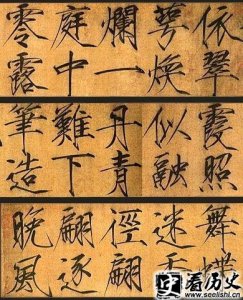 依翠
萼煥
爛一
庭中
零露
霞照
似融
丹青
難下
筆造
舞蝶
迷香
徑翩
翩逐
晚風
看历史
www.seelishi.cn